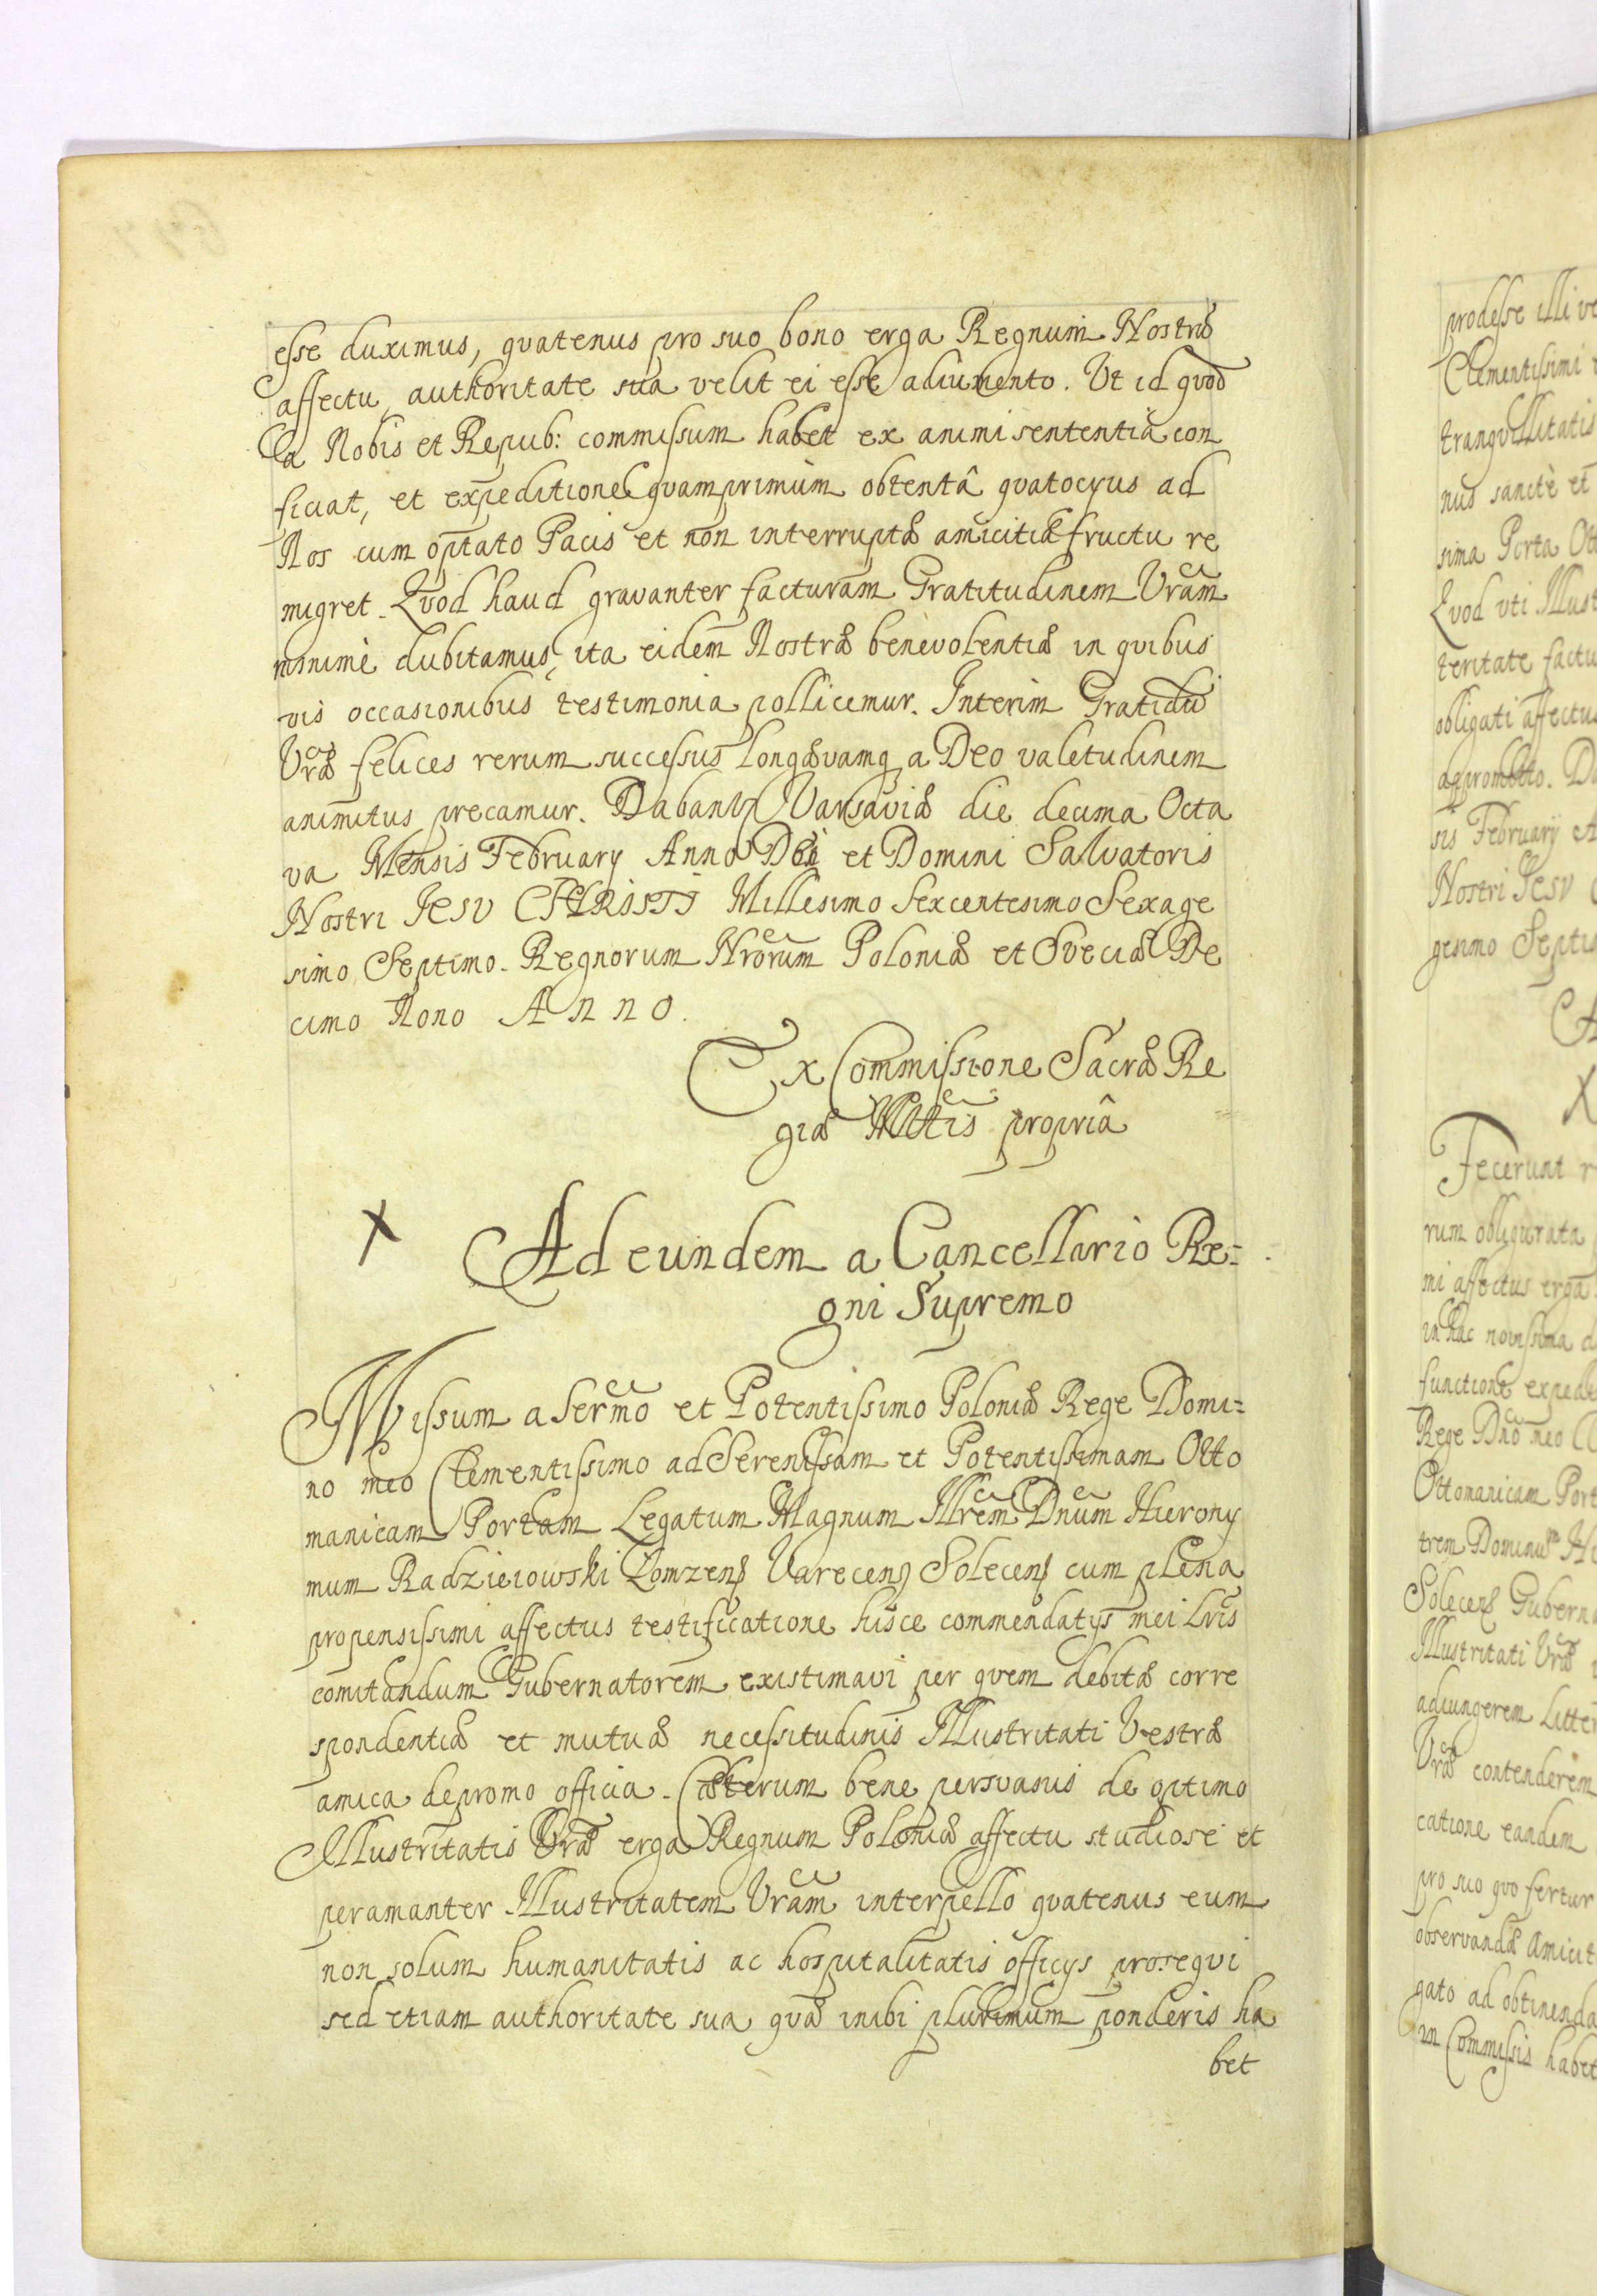 esse duximus, qvatenus pro suo bono erga Regnum Nostrũ
affectu, authoritate sua velit ei esse adiumento. Ut id qvod
a Nobis et Repub: commissum habet ex animi sententiâ con
ficiat, et expeditione qvamprimùm obtentâ qvatocyus ad
Nos cum optato Pacis et non interruptæ amicitiæ fructu re
migret. Qvod haud gravanter facturam Gratitudinem Vram̃
minimè dubitamus, ita eidem Nostræ benevolentiæ in qvibus
vis occasionibus testimonia pollicemur. Interim Gratidũ
Vræ felices rerum successus longævamq a Deo valetudinem
animitus precamur. Dabant Varsaviæ die decima Octa
va Mensis February Anno Dei et Domini Salvatoris
Nostri JESU CHRISTI Millesimo Sexcentesimo Sexage
simo Septimo. Regnorum Nrorum Poloniæ et Sveciæ De
cimo Nono Anno.
Ex Commissione Sacræ Re
giæ Mttis propriâ
X
Ad eundem a Cancellario Re=
gni Supremo
Missum a Sermo et Potentissimo Poloniæ Rege Domi=
no meo Clementissimo ad Serenissam et Potentissimam Otto
manicam Portam Legatum Magnum Illrem Dnum Hierony
mum Radzieiowski Lomzens Varecens Solecens cum plena
propensissimi affectus testificatione hisce commendatys mei Lris
comitandum Gubernatorem existimavi per qvem debitæ corre
spondentiæ et mutuæ necessitudinis Illustritati Vestræ
amica depromo officia. Cæterum bene persvasus de optimo
Illustritatis Vræ erga Regnum Poloniæ affectu studiose et
peramanter Illustritatem Vram interpello qvatenus eum
non solum humanitatis ac hospitalitatis officys proseqvi
sed etiam authoritate sua qvæ inibi plurimum ponderis ha
bet
prodesse illi
Clementissimi
tranqvillitatis
nus sancte et
sima Porta
Qvod uti
teritate
obligati affectus
sis February
Nostri JESU
gesimo
X
Fecerunt
rum
mi affectus erga
in hac novissima
functione
Rege Dno meo
Ottomanicam
trem
Solecens
Illustritati Vræ
adiungerem
Vræ contenderem
catione eandem
pro suo qvo fertur
observandæ
gato ad
in Commissis habet